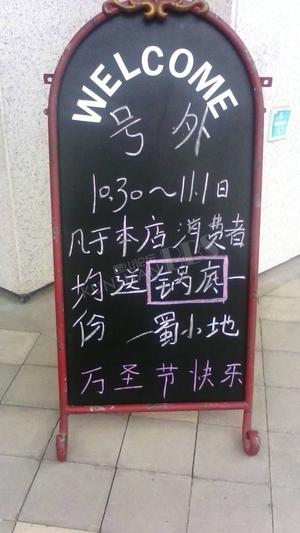 WELCOME
号外
10.30～11.1日
凡于本店消费者
均送锅底一
份 —蜀小地
万圣节快乐